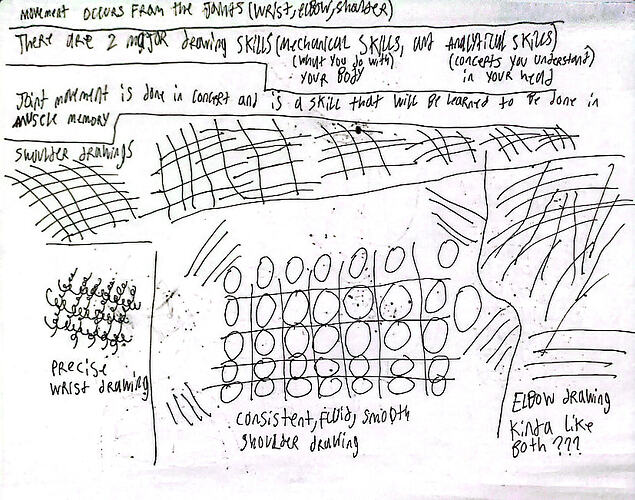 movement occurs from the joints (wrist, elbow, shoulder)
There are 2 major drawing skills (mechanical skills, and Analytical skills)
(what you do with) (concepts you understand)
your body in your head
Joint movement is done in concert and is a skill that will be learned to be done in
muscle memory
shoulder drawings
precise
wrist drawing
consistent, fluid, smooth
shoulder drawing
Elbow drawing
kinda like
both ???